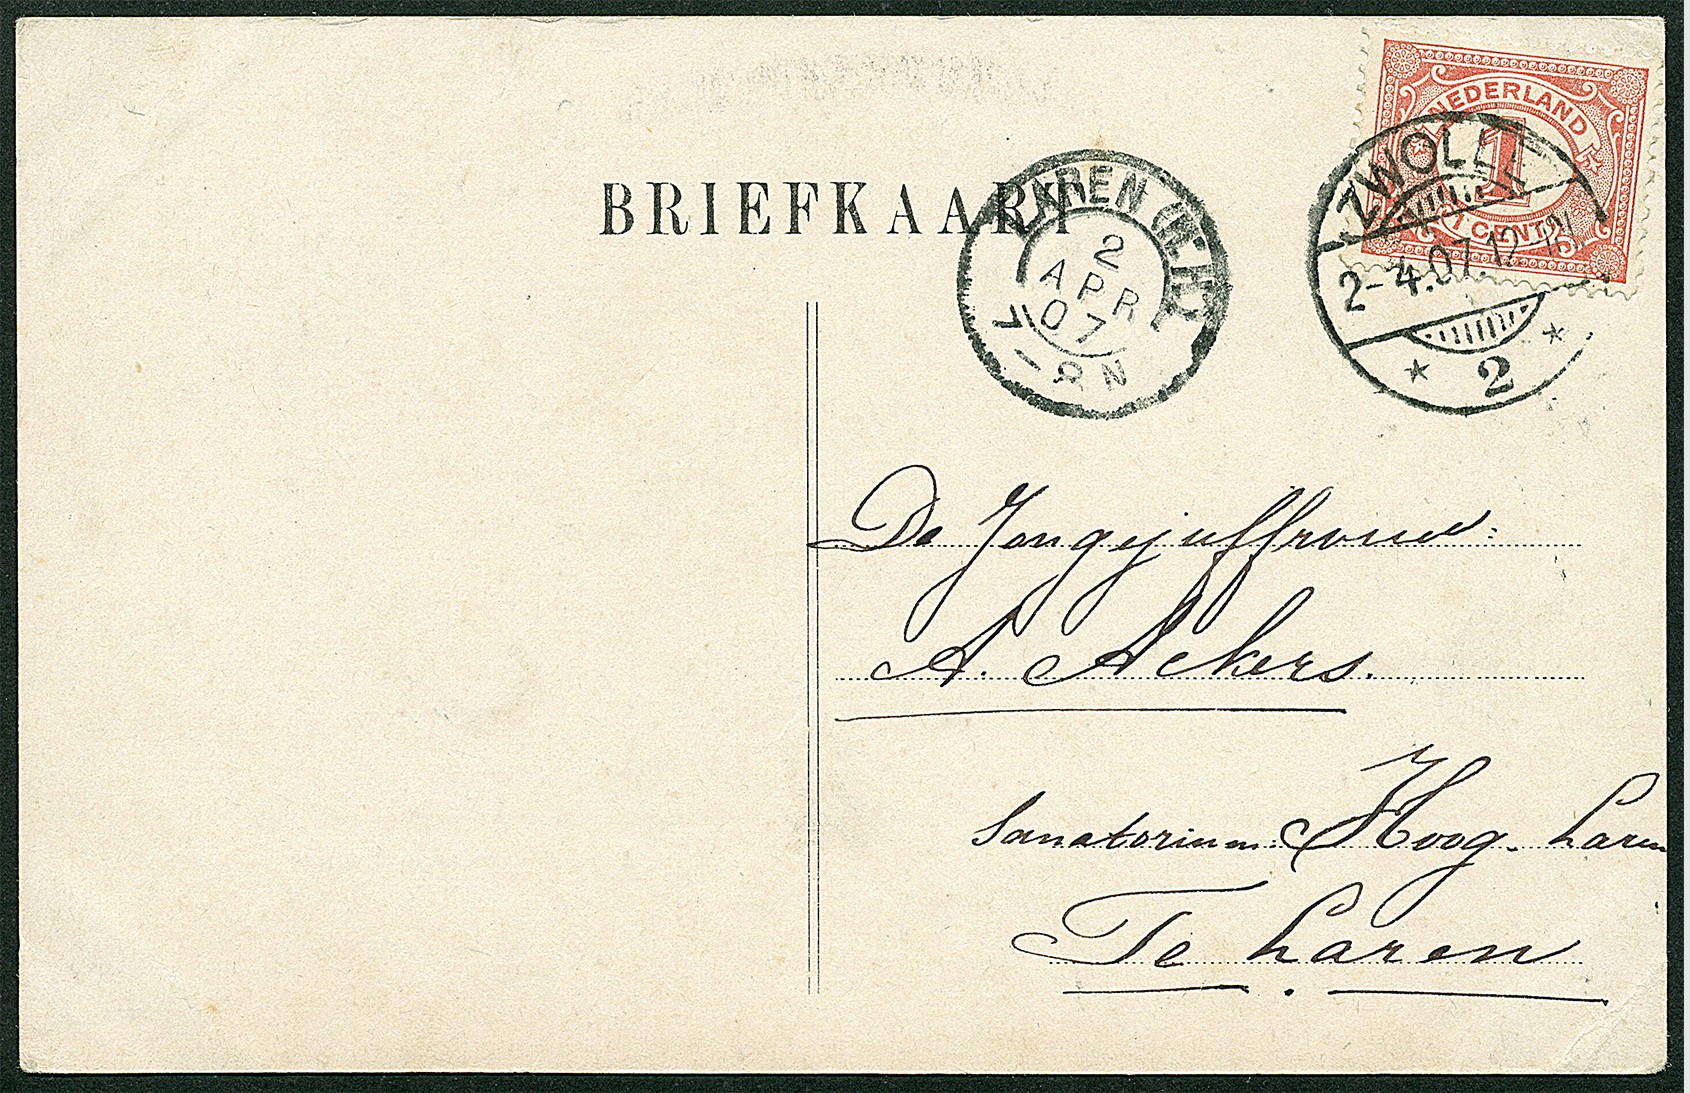 NEDERLAND
1
1 CENT
ZWOLLE
2-4.07.12-
2
BRIEFKAART
LAREN (N.H.)
2
APR
07
7-8N
De Jongejuffrouw:
A. Ackers.
Sanatorium Hoog-Laren
Te Laren